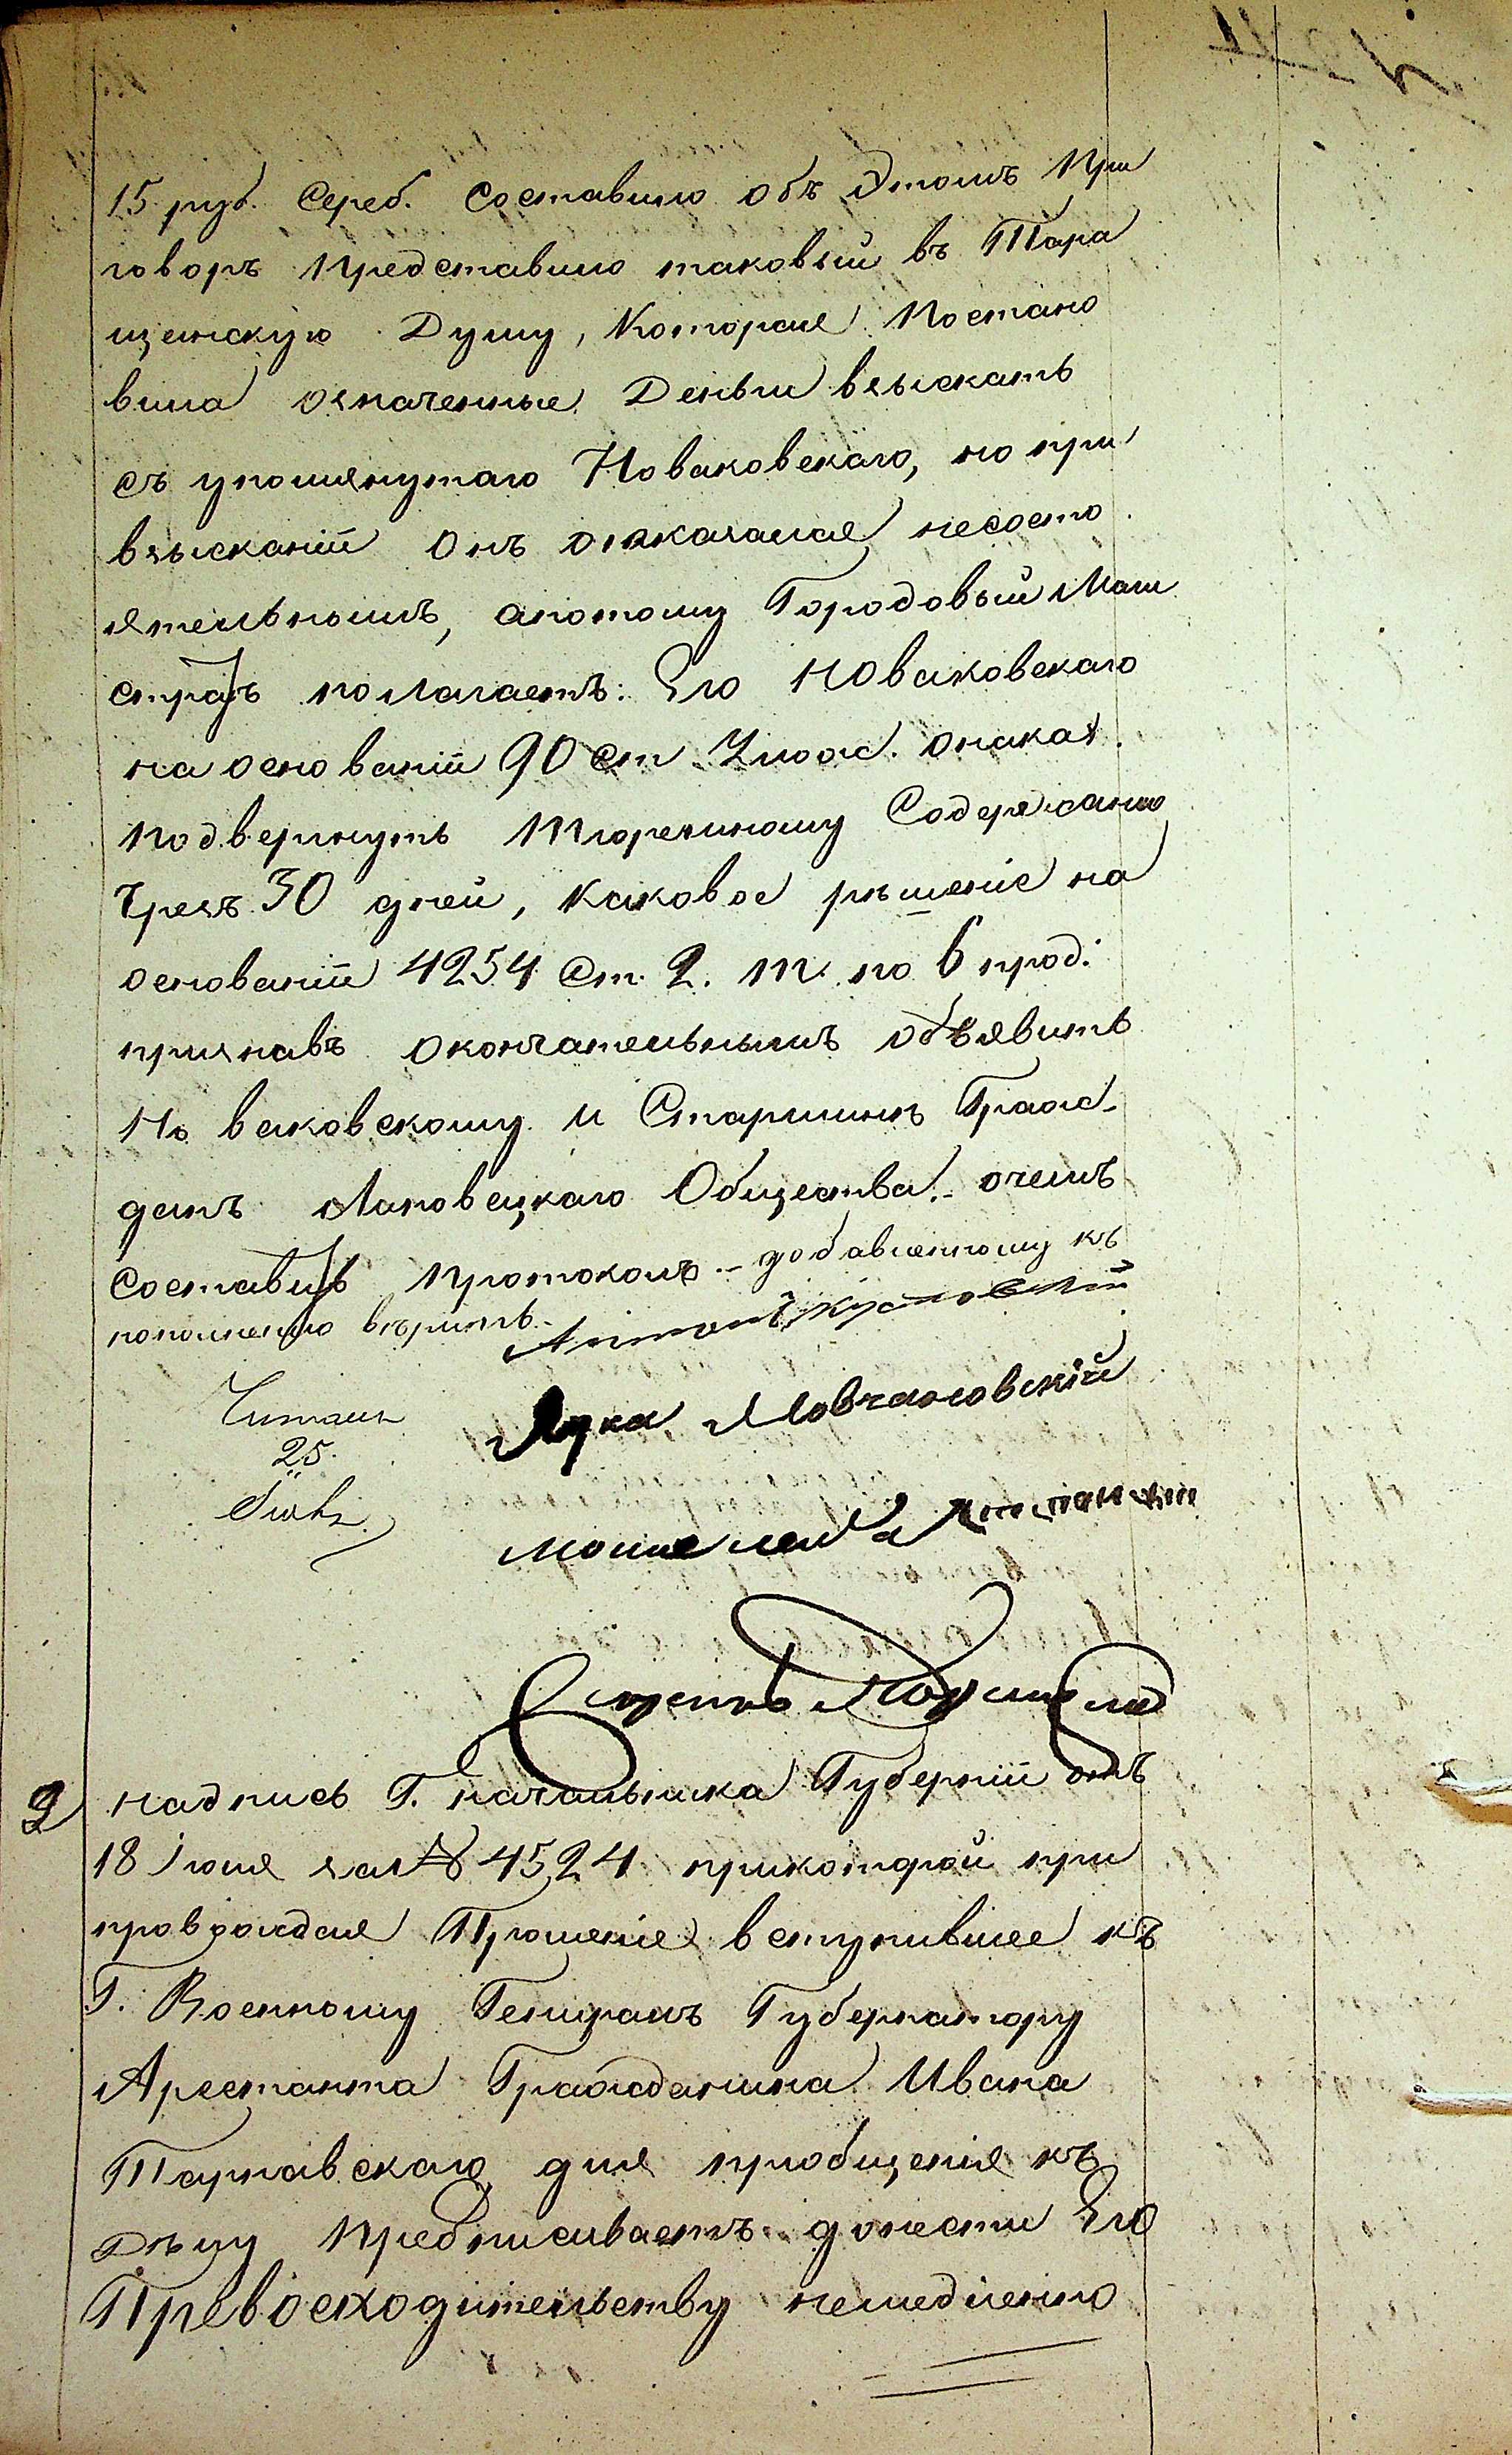 15 руб. Сереб. Составило объ Этомъ При
говоръ представило таковый въ Тара
щанскую Думу, Которая Постано
вила означенные Деньги взыскать
съ упомянутаго Новаковскаго, но при
взысканіи Онъ оказался несосто
ятельнымъ, апотому Городовый Маги
стратъ полагаетъ: Его Новаковскаго
на основаніи 90 Ст Улож. онаказ.
подвергнуть Тюремному Содержанію
Чрезъ 30 дней, каковое рѣшеніе на
основаніи 4254 Ст. 2. т. по 6 прод:
признавъ окончательнымъ объявить
Новаковскому и Старшинѣ Граж-
данъ Общества. очемъ
Составить протоколъ. - добавленному къ
пополненію вѣрить.
Читалъ
25.
Лука Мовчановскій
2 надпись Г. начальника Губерніи отъ
18 Іюля за № 4524 прикоторой при
провождая Прошеніе вступившее къ
Г. Военному Генералъ Губернатору
Арестанта Гражданина Ивана
Тарнавскаго для пріобщенія къ
дѣлу предписываетъ донести Его
Превосходительству немедленно